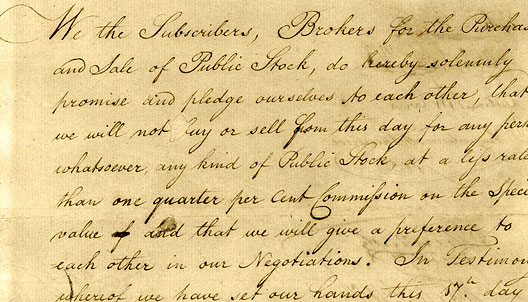 We the Subscribers, Brokers for the Purchas
and Sale of Public Stock, do hereby solemnly
promise and pledge ourselves to each other, that
we will not buy or sell from this day for any pers
whatsoever, any kind of Public Stock, at a less rate
than one quarter per Cent Commission on the Speci
value of and that we will give a preference to
each other in our Negotiations. In Testimon
whereof we have set our hands this 17th day